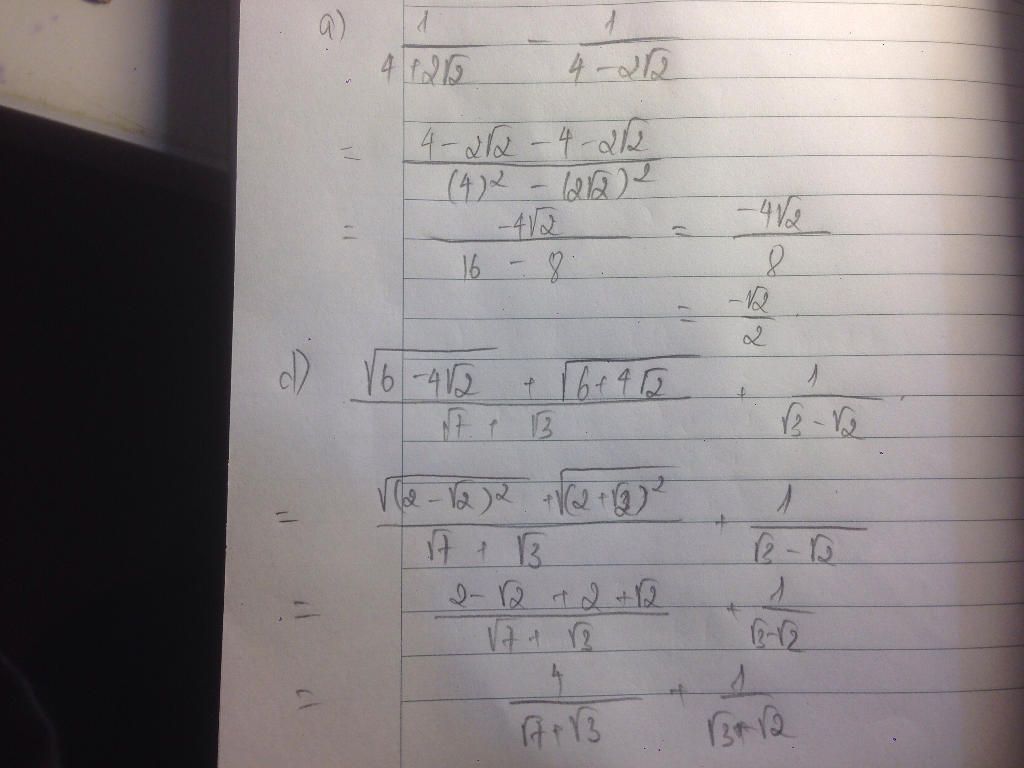 a) 1/(4 + 2√2) - 1/(4 - 2√2)
= (4 - 2√2 - 4 - 2√2)/((4)² - (2√2)²)
= -4√2/(16 - 8) = -4√2/8
= -√2/2
d) (√(6 - 4√2) + √(6 + 4√2))/(√7 + √3) + 1/(√3 - √2)
= (√((2 - √2)²) + √((2 + √2)²))/(√7 + √3) + 1/(√3 - √2)
= (2 - √2 + 2 + √2)/(√7 + √3) + 1/(√3 - √2)
= 4/(√7 + √3) + 1/(√3 - √2)